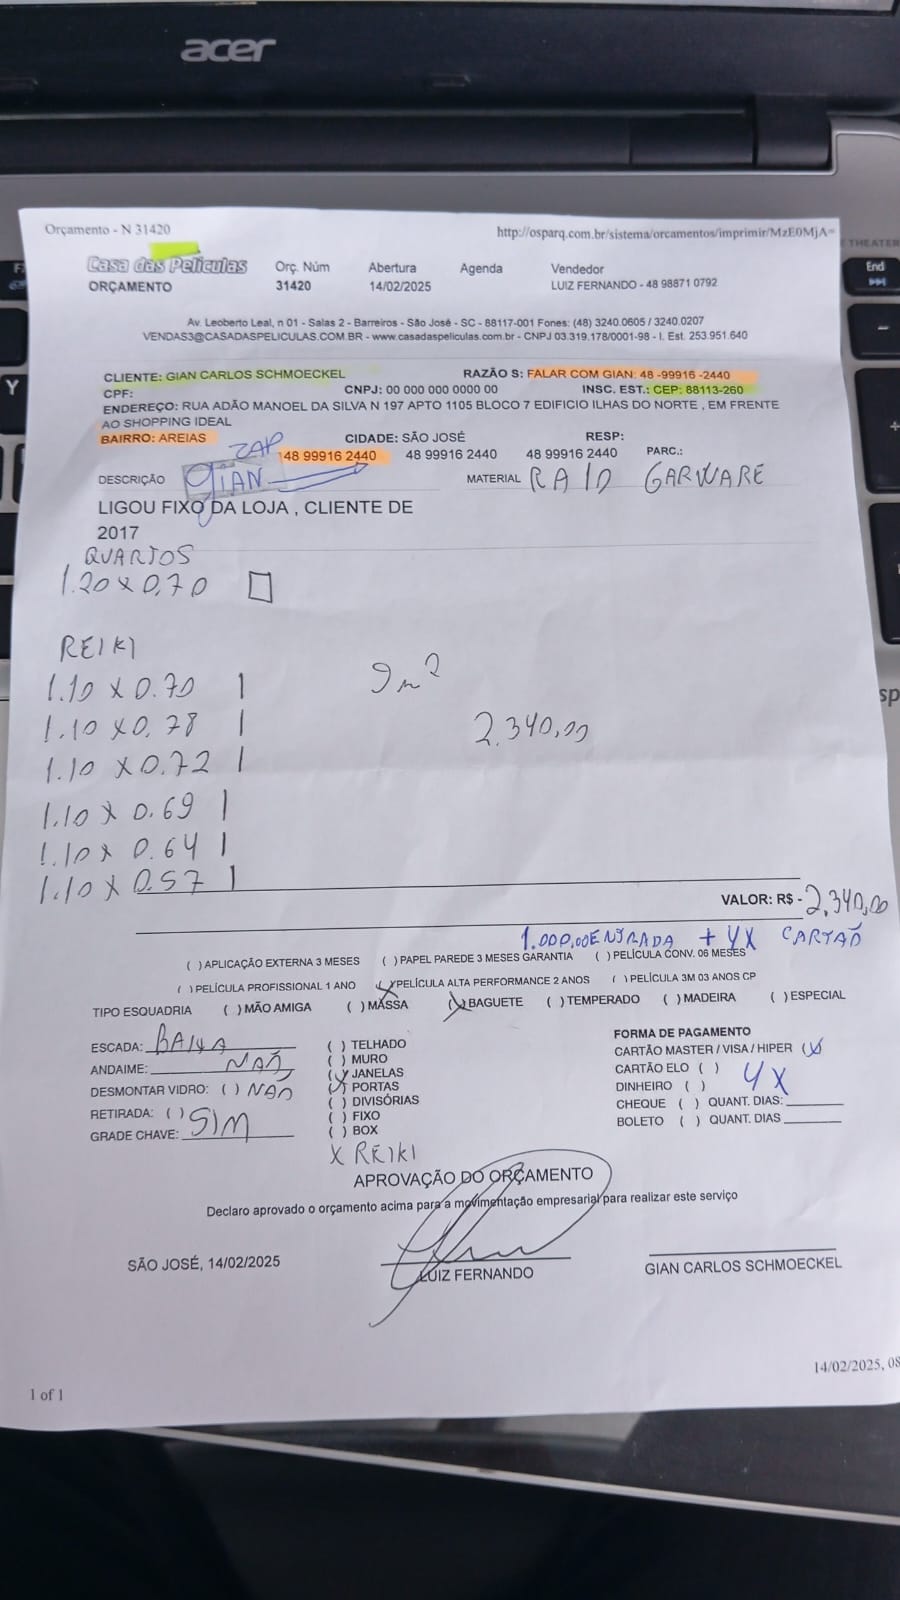 acer
Orçamento - N 31420
http://osparq.com.br/sistema/orcamentos/imprimir/MzE0MjA=
THEATER
End
Casa das Películas
Orç. Núm Abertura Agenda Vendedor
ORÇAMENTO 31420 14/02/2025 LUIZ FERNANDO - 48 98871 0792
Av. Leoberto Leal, n 01 - Salas 2 - Barreiros - São José - SC - 88117-001 Fones: (48) 3240.0605 / 3240.0207
VENDAS3@CASADASPELICULAS.COM.BR - www.casadaspeliculas.com.br - CNPJ 03.319.178/0001-98 - I. Est. 253.951.640
Y
CLIENTE: GIAN CARLOS SCHMOECKEL RAZÃO S: FALAR COM GIAN: 48 -99916 -2440
CPF: CNPJ: 00 000 000 0000 00 INSC. EST.: CEP: 88113-260
ENDEREÇO: RUA ADÃO MANOEL DA SILVA N 197 APTO 1105 BLOCO 7 EDIFICIO ILHAS DO NORTE , EM FRENTE
AO SHOPPING IDEAL
BAIRRO: AREIAS CIDADE: SÃO JOSÉ RESP:
ZAP 48 99916 2440 48 99916 2440 48 99916 2440 PARC.:
DESCRIÇÃO GIAN MATERIAL RA10 GARWARE
LIGOU FIXO DA LOJA , CLIENTE DE
2017
QUARTOS
1.20 x 0,70
REIKI
1.10 x 0.70 | 9m²
1.10 x 0.78 | 2.340,00
1.10 x 0.72 |
1.10 x 0.69 |
1.10 x 0.64 |
1.10 x 0.57 |
VALOR: R$ - 2,340,00
1.000,00 ENTRADA + 4X CARTÃO
( ) APLICAÇÃO EXTERNA 3 MESES ( ) PAPEL PAREDE 3 MESES GARANTIA ( ) PELÍCULA CONV. 06 MESES
( ) PELÍCULA PROFISSIONAL 1 ANO (X) PELÍCULA ALTA PERFORMANCE 2 ANOS ( ) PELÍCULA 3M 03 ANOS CP
TIPO ESQUADRIA ( ) MÃO AMIGA ( ) MASSA (X) BAGUETE ( ) TEMPERADO ( ) MADEIRA ( ) ESPECIAL
ESCADA: BAIXA
ANDAIME: NAÕ
DESMONTAR VIDRO: ( ) NAÕ
RETIRADA: ( )
GRADE CHAVE: SIM
( ) TELHADO
( ) MURO
(X) JANELAS
(X) PORTAS
( ) DIVISÓRIAS
( ) FIXO
( ) BOX
X REIKI
FORMA DE PAGAMENTO
CARTÃO MASTER / VISA / HIPER (X)
CARTÃO ELO ( )
DINHEIRO ( ) 4X
CHEQUE ( ) QUANT. DIAS:
BOLETO ( ) QUANT. DIAS
APROVAÇÃO DO ORÇAMENTO
Declaro aprovado o orçamento acima para a movimentação empresarial para realizar este serviço
SÃO JOSÉ, 14/02/2025
LUIZ FERNANDO
GIAN CARLOS SCHMOECKEL
14/02/2025, 08
1 of 1